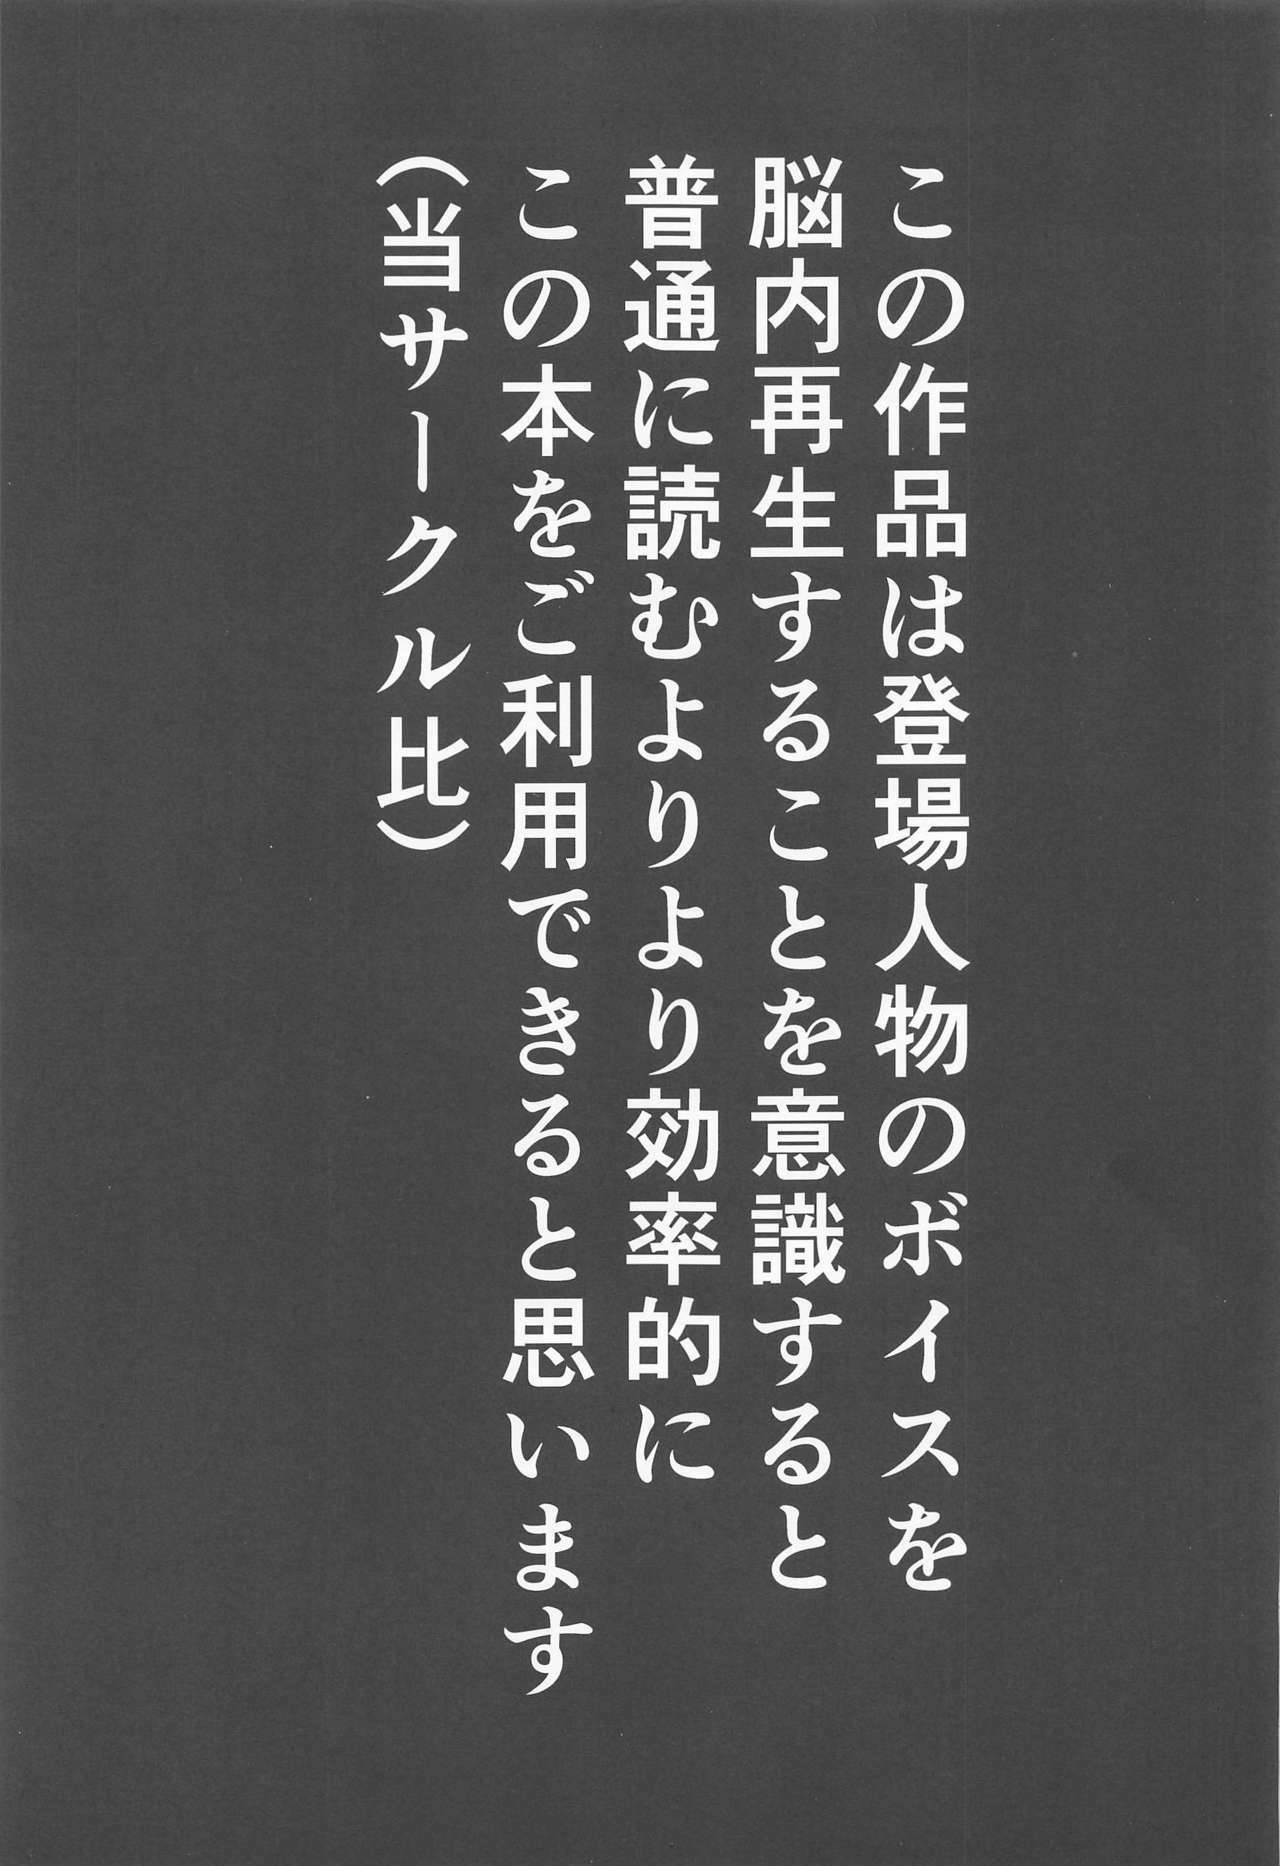 この作品は登場人物のボイスを
脳内再生することを意識すると
普通に読むよりより効率的に
この本をご利用できると思います
（当サークル比）